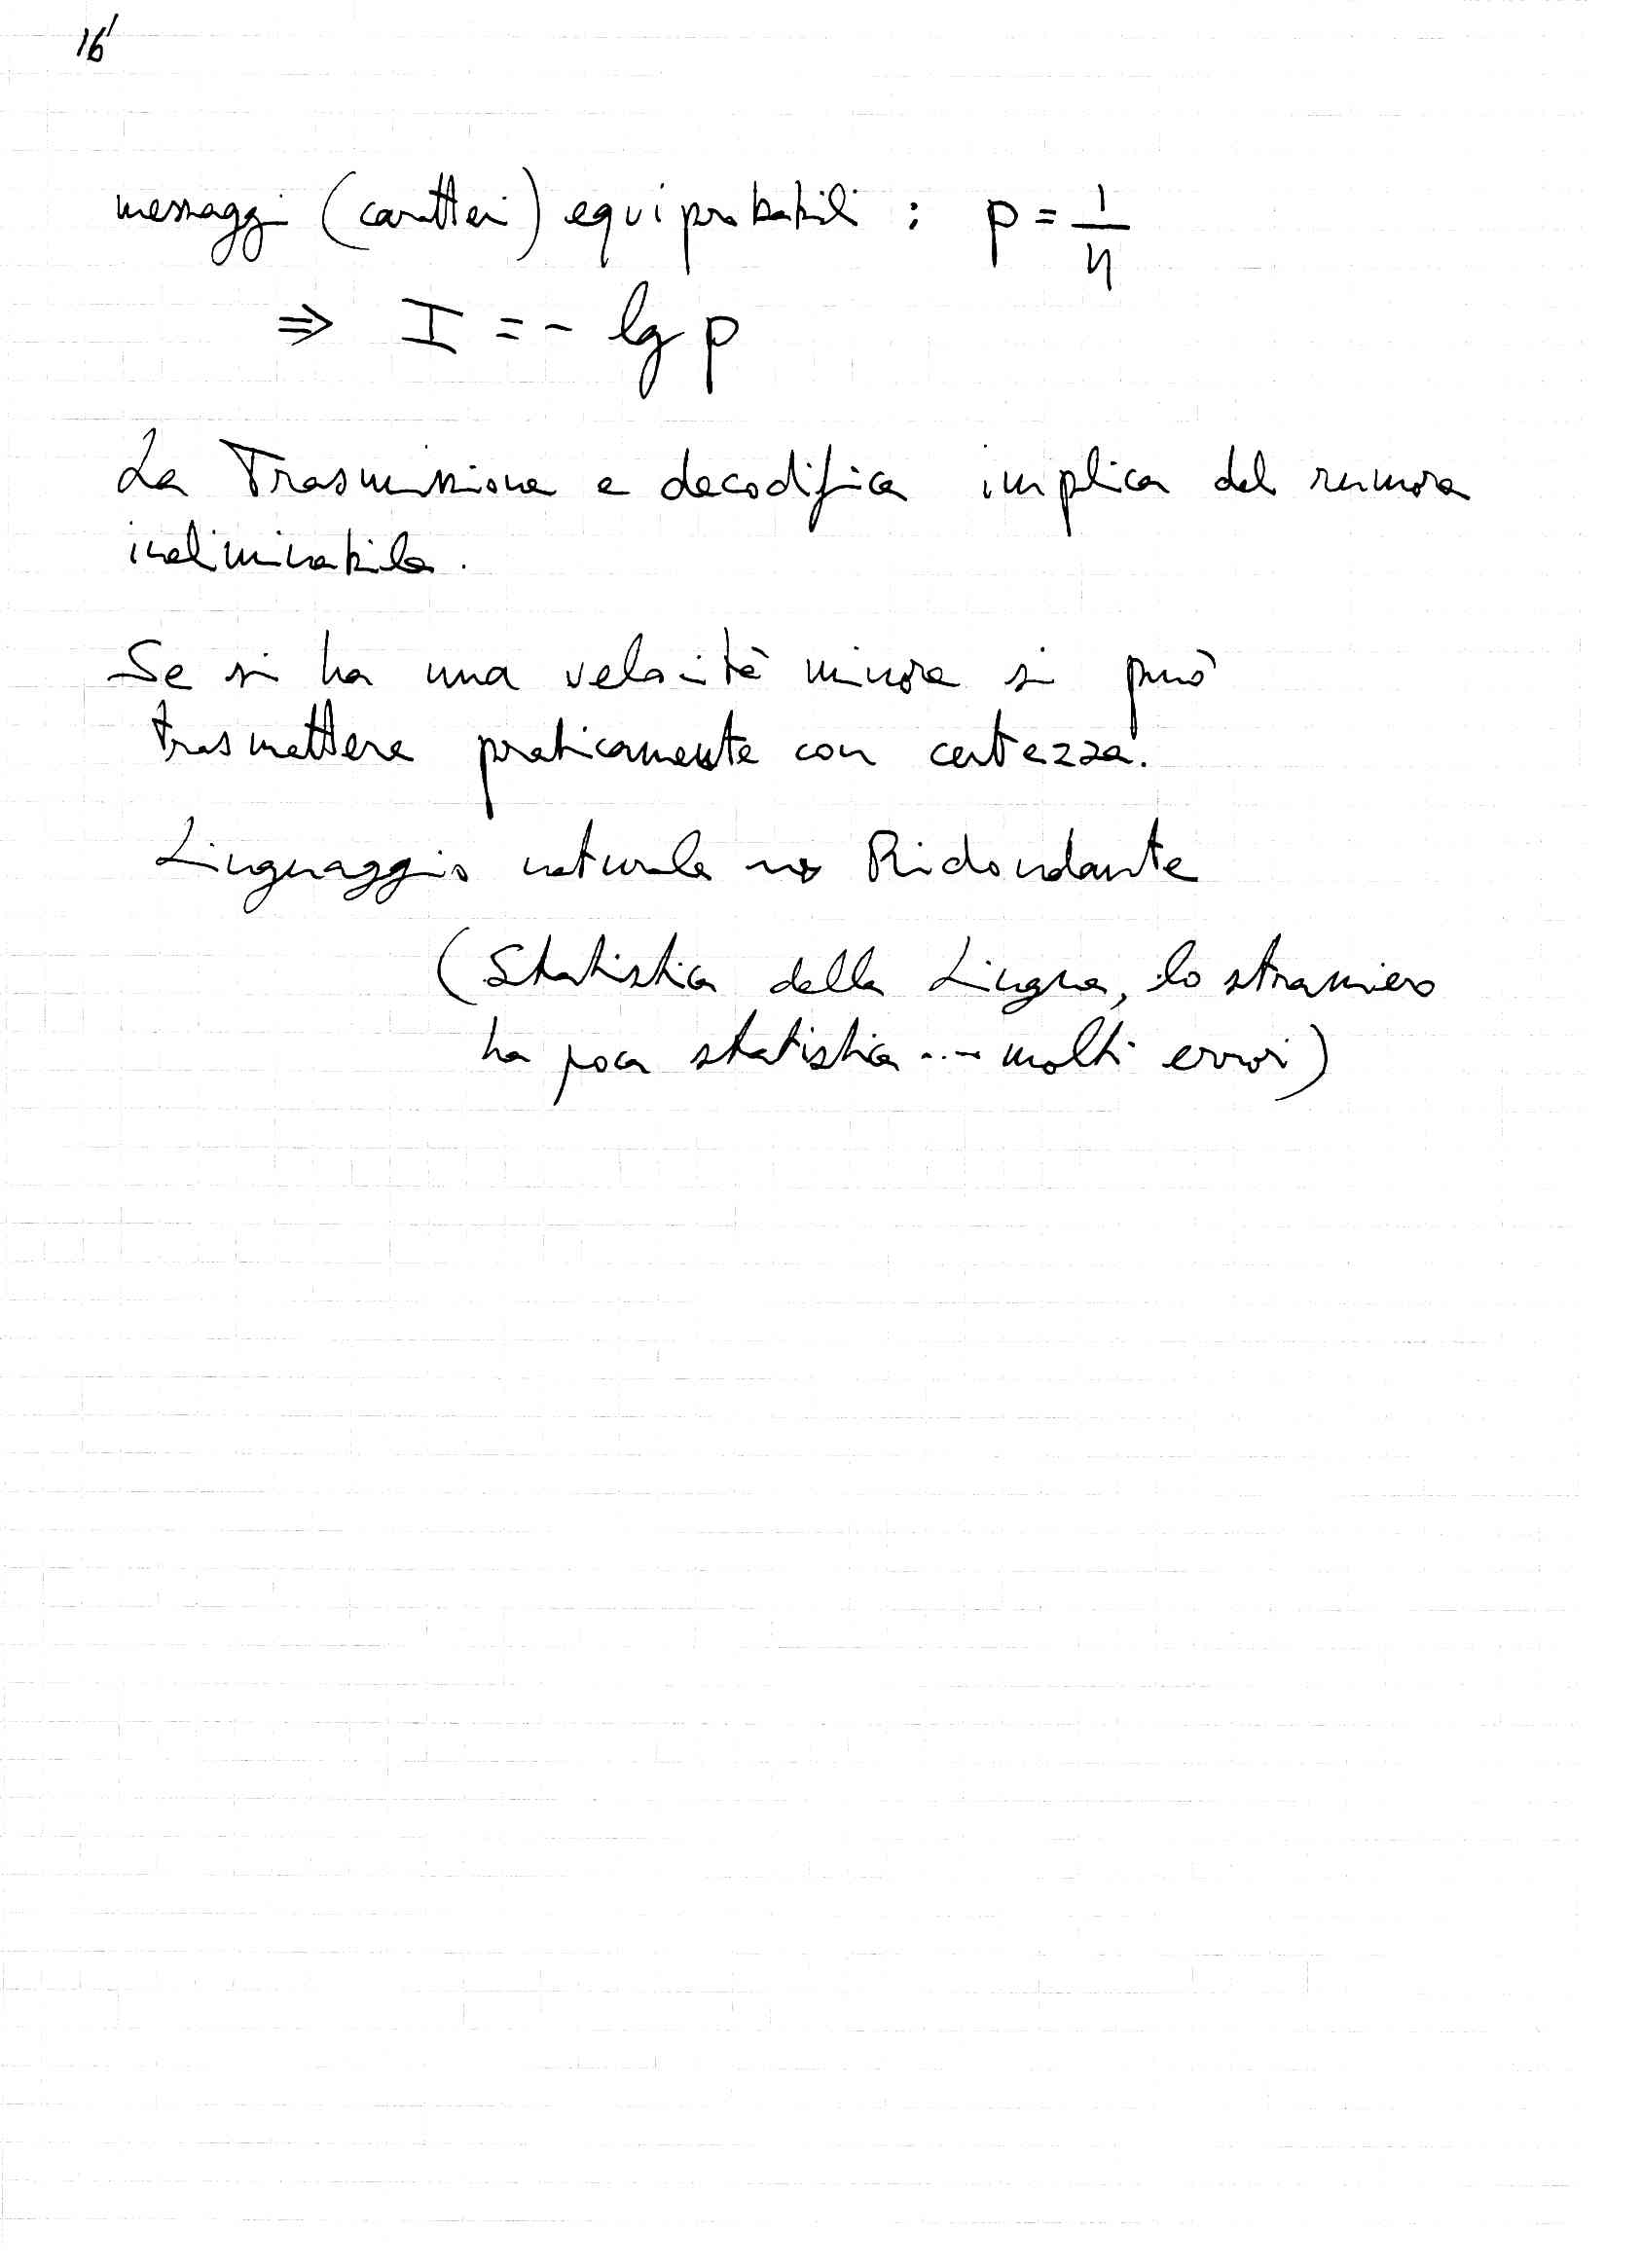 16'
messaggi (caratteri) equiprobabili : p = 1/n
⇒ I = - lg p
La Trasmissione e decodifica implica del rumore
ineliminabile.
Se si ha una velocità minore si può
trasmettere praticamente con certezza.
Linguaggio naturale ⇝ Ridondante
(Statistica della Lingua, lo straniero
ha poca statistica ... molti errori)